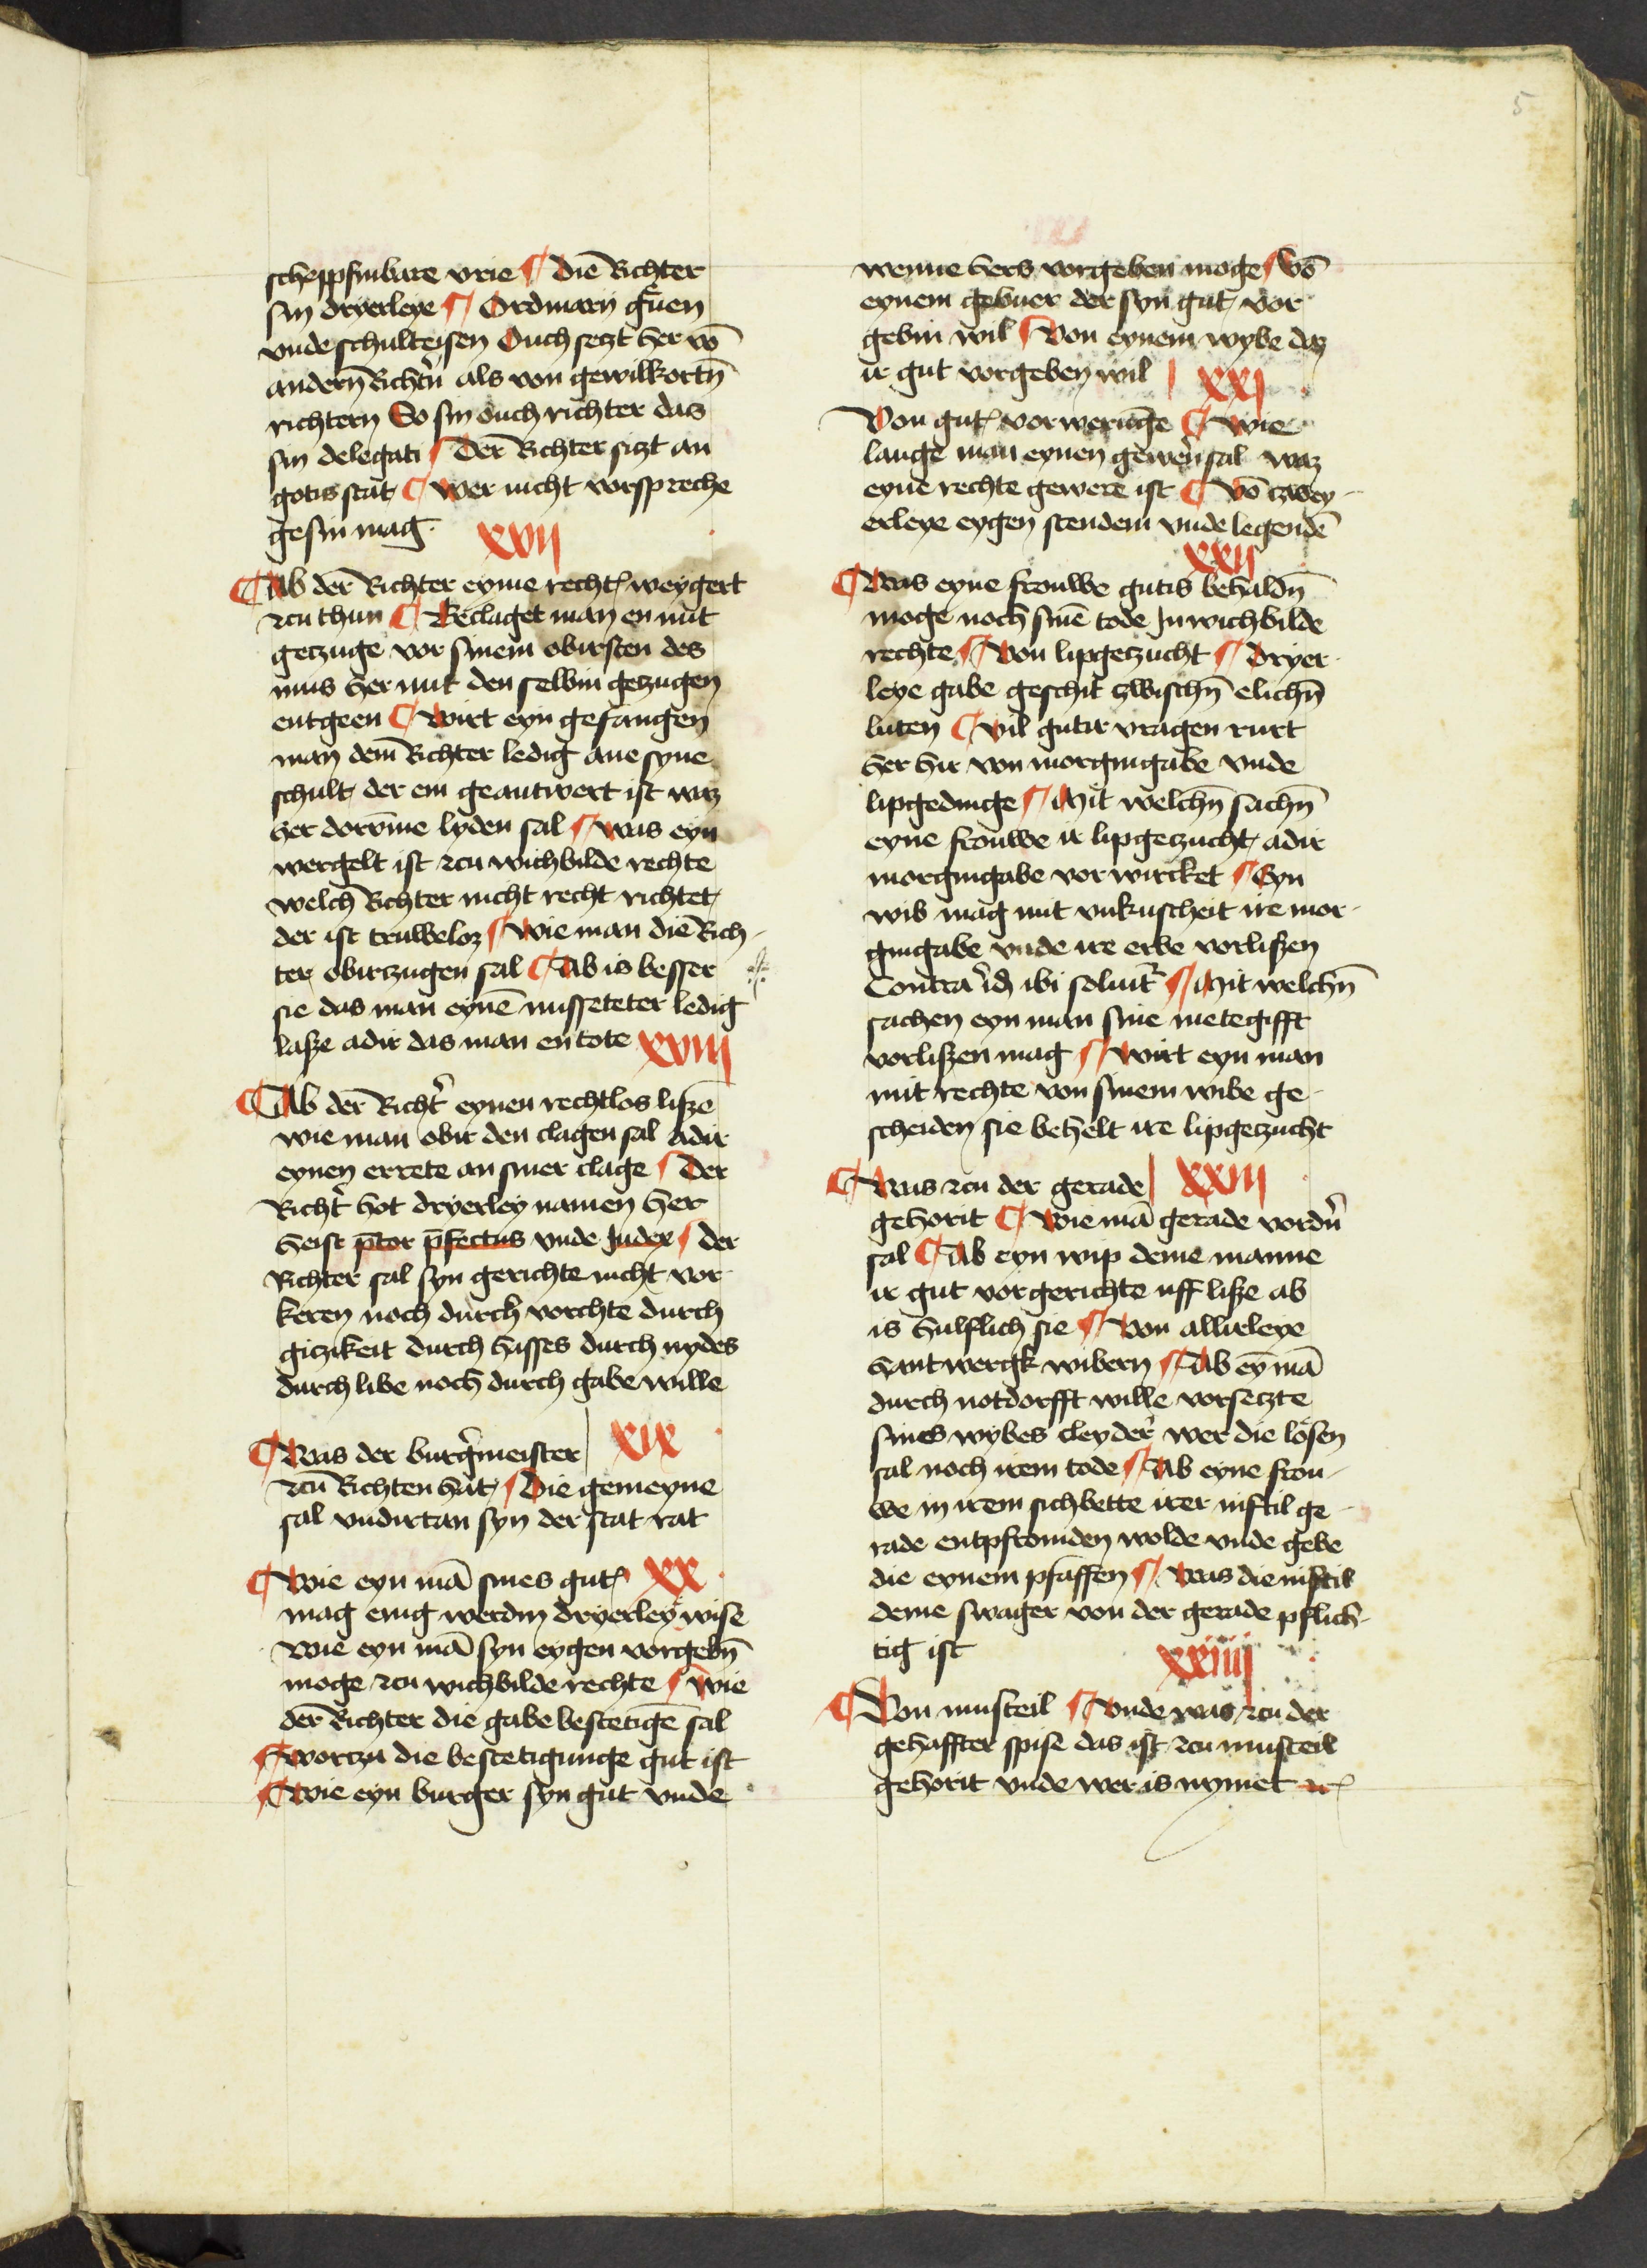 5
scheppfinbare vrie ¶ die Richter
sin dryerleye ¶ Ordinarij g̃uen
vnde schulteisen Ouch seczt her vō
andern̄ Richtn̄ als von gewilkortn̄
richtern So sin ouch richter das
sin delegati ¶ Der Richter siczt an
gotis stat ¶ wer nicht vorspreche
gesin mag
xvij
¶ Ab der Richter eyme recht weygert
czu thun ¶ Beclaget man en mit
geczuge vor sinem obirsten des
mus her mit den selbin geczugen
entgeen ¶ wirt eyn gefangen
man dem Richter ledig ane syne
schult der em geantwert ist waz
her dorv̄me lyden sal ¶ was eyn
wergelt ist czu wichbilde rechte
welch Richter nicht recht richtet
der ist truweloz ¶ wie man die Rich-
ter obirczugen sal ¶ Ab is besser
sie das man eynē misseteter ledig
lasze adir das man en tote
xviij
¶ Ab der Richt̉ eynen rechtlos liszē
wie man obir den clagen sal adir
eynen errete an siner clage ¶ Der
Richt̉ hot dryerley namen her
heist p̄tor p̄fectus vnde Judex ¶ der
Richter sal syn gerichte nicht vor
keren noch durch vorchte durch
giczikeit durch hasses durch nydes
durch libe noch durch gabe wille
¶ Was der burg̉meister
xix
czu Richten hat ¶ Die gemeyne
sal vndirtan syn der stat rat
¶ Wie eyn mā sines gut
xx
mag enig werdin dryerley wise
Wie eyn mā syn eygen vorgebn̄
moge czu wichbilde rechte ¶ wie
der Richter die gabe bestetigē sal
¶ worczu die bestetigunge gut ist
¶ Wie eyn burger syn gut vnde
wenne hers vorgeben moge ¶ vō
eynem gebuer der syn gut vor
gebin wil ¶ Von eynem wybe daz
ir gut vorgeben wil
xxj
Von gut vorweringe ¶ wie
lange man eynen gewern̉ sal waz
eyne rechte gewere ist ¶ vō czwey-
erleye eygen stendem vnde legendē
xxij
¶ Was eyne frouwe gutis behaldn̄
moge noch sinē tode In wichbilde
rechte ¶ Von lipgeczucht ¶ dryer-
leye gabe geschit czwischn̄ elichn̄
luten ¶ vil gutir vragen rurt
her hir von morgingabe vnde
lipgedinge ¶ Mit welchn̄ sachn̄
eyne frouwe ir lipgeczucht adir
morgingabe vorwircket ¶ Eyn
wib mag mit vnkuscheit ire mor-
gingabe vnde ire erbe vorliszen
Contra id ibi soluit̉ ¶ Mit welchn̄
sachen eyn man sine metegifft
vorliszen mag ¶ Wirt eyn man
mit rechte von sinem wibe ge-
scheiden sie behelt ire lipgeczucht
¶ Was czu der gerade
xxiij
gehorit ¶ Wie mā gerade vordn̉
sal ¶ Ab eyn wip deme manne
ir gut vor gerichte uff lisze ab
is hulflich sie ¶ Von allirleye
hantwergk wibern ¶ Ab ey̅ mā
durch notdorfft wille vorseczte
sines wybes cleyder̉ wer die losen
sal noch irem tode ¶ Ab eyne frou-
we in irem sichbette irer niftil ge-
rade entpfromden wolde vnde gebe
die eynem pfaffen ¶ Was die niftil
deme swager von der gerade pflich-
tig ist
xxiiij
¶ Von musteil ¶ Vnde was czu der
gehaffter spise das ist czu musteil
gehorit vnde wer is nymet ꝛc